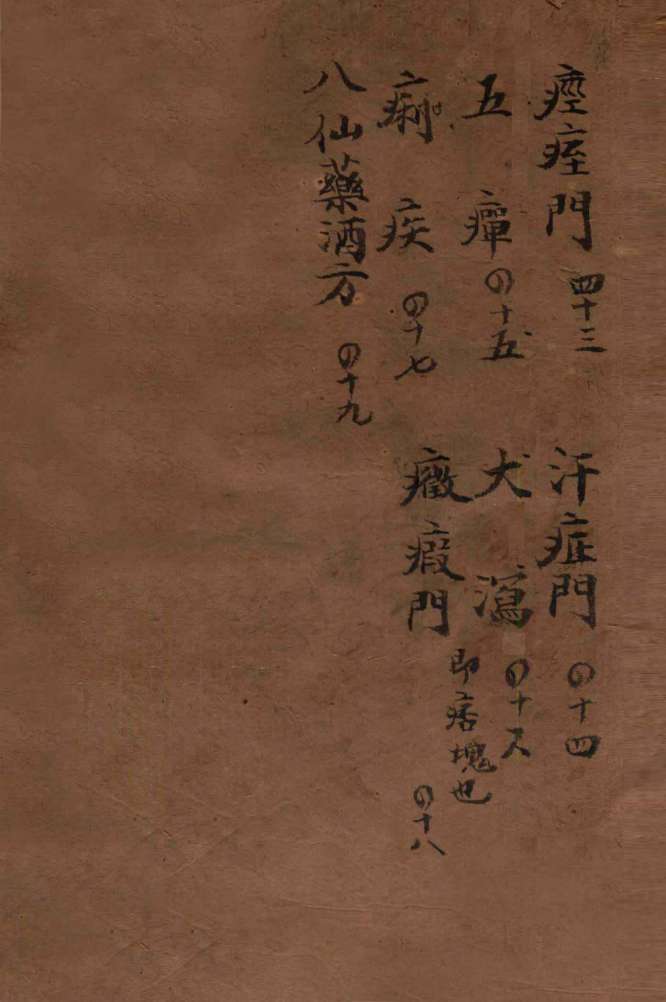 痙痓門 四十三 汗症門 四十四
五癉 四十五 犬瀉 四十六
痢疾 四十七 癥瘕門 即痞塊也 四十八
八仙藥酒方 四十九